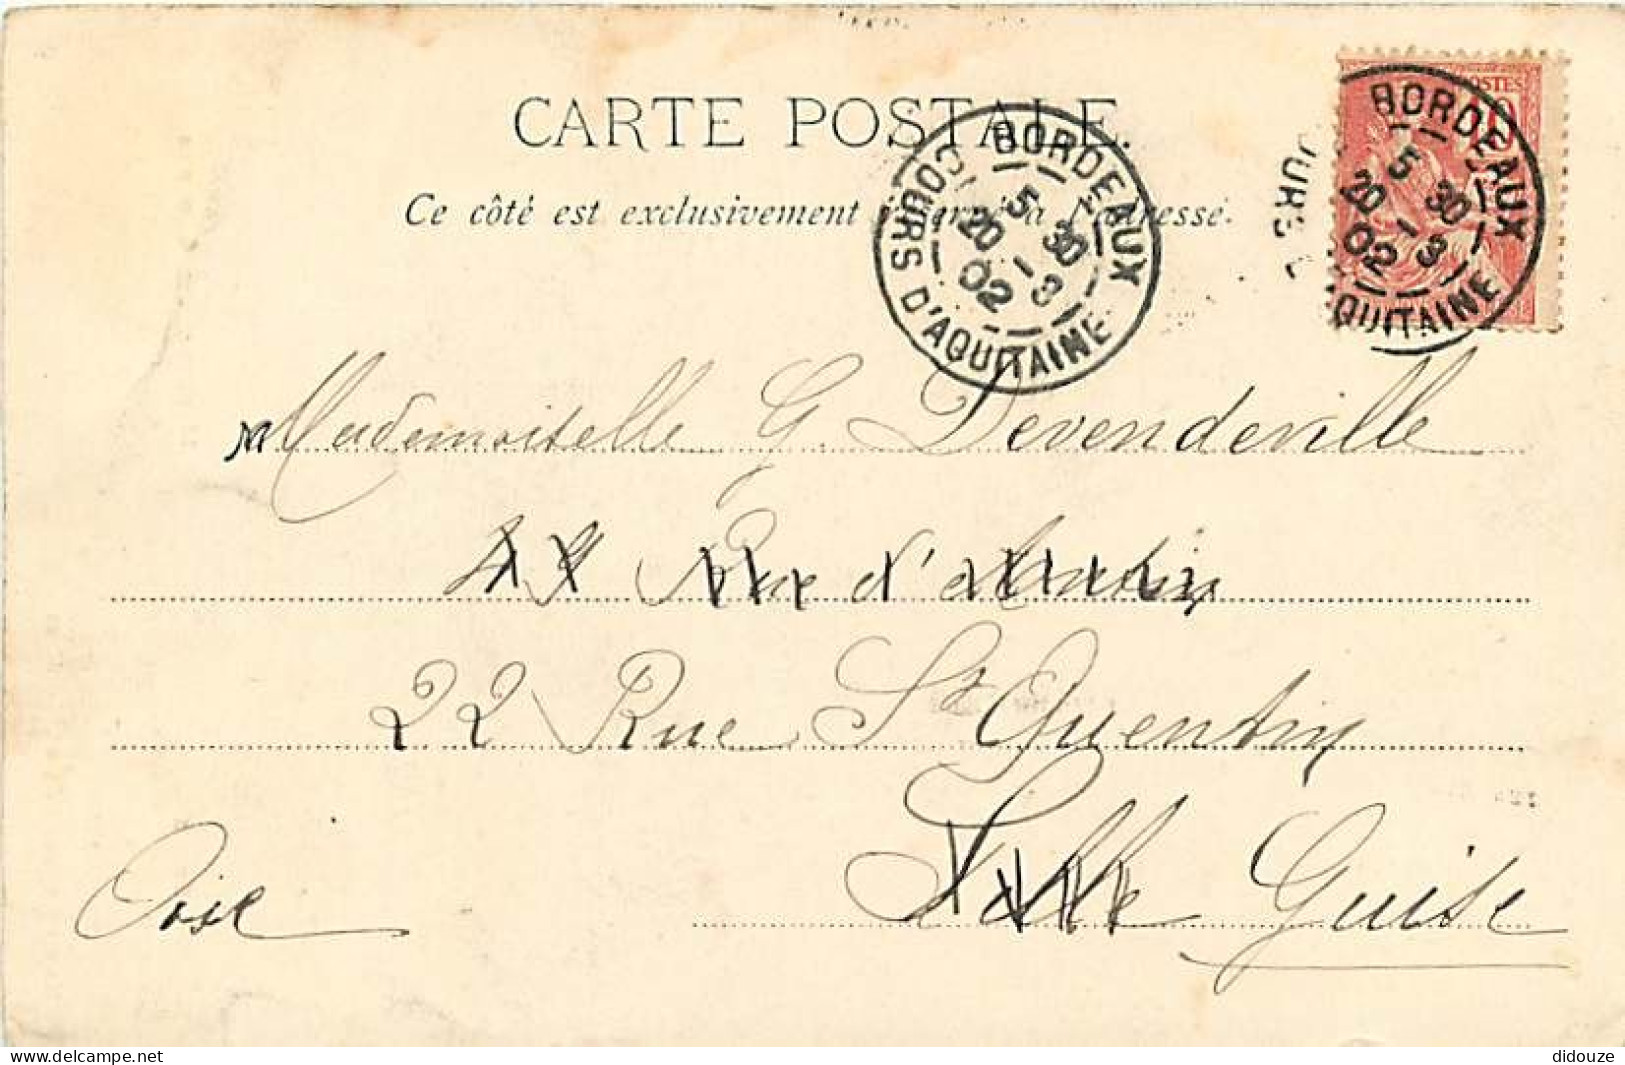 CARTE POSTALE.
Ce côté est exclusivement réservé à l'adresse.
BORDEAUX
COURS D'AQUITAINE
5 30
20 - 3
02
POSTES
10
BORDEAUX
5 30
20 - 3
02
QUITAINE
OURS
Mademoiselle G. Devendeville
Rue d'
22 Rue St Quentin
Lille Guise
Oise
delcampe.net
didouze